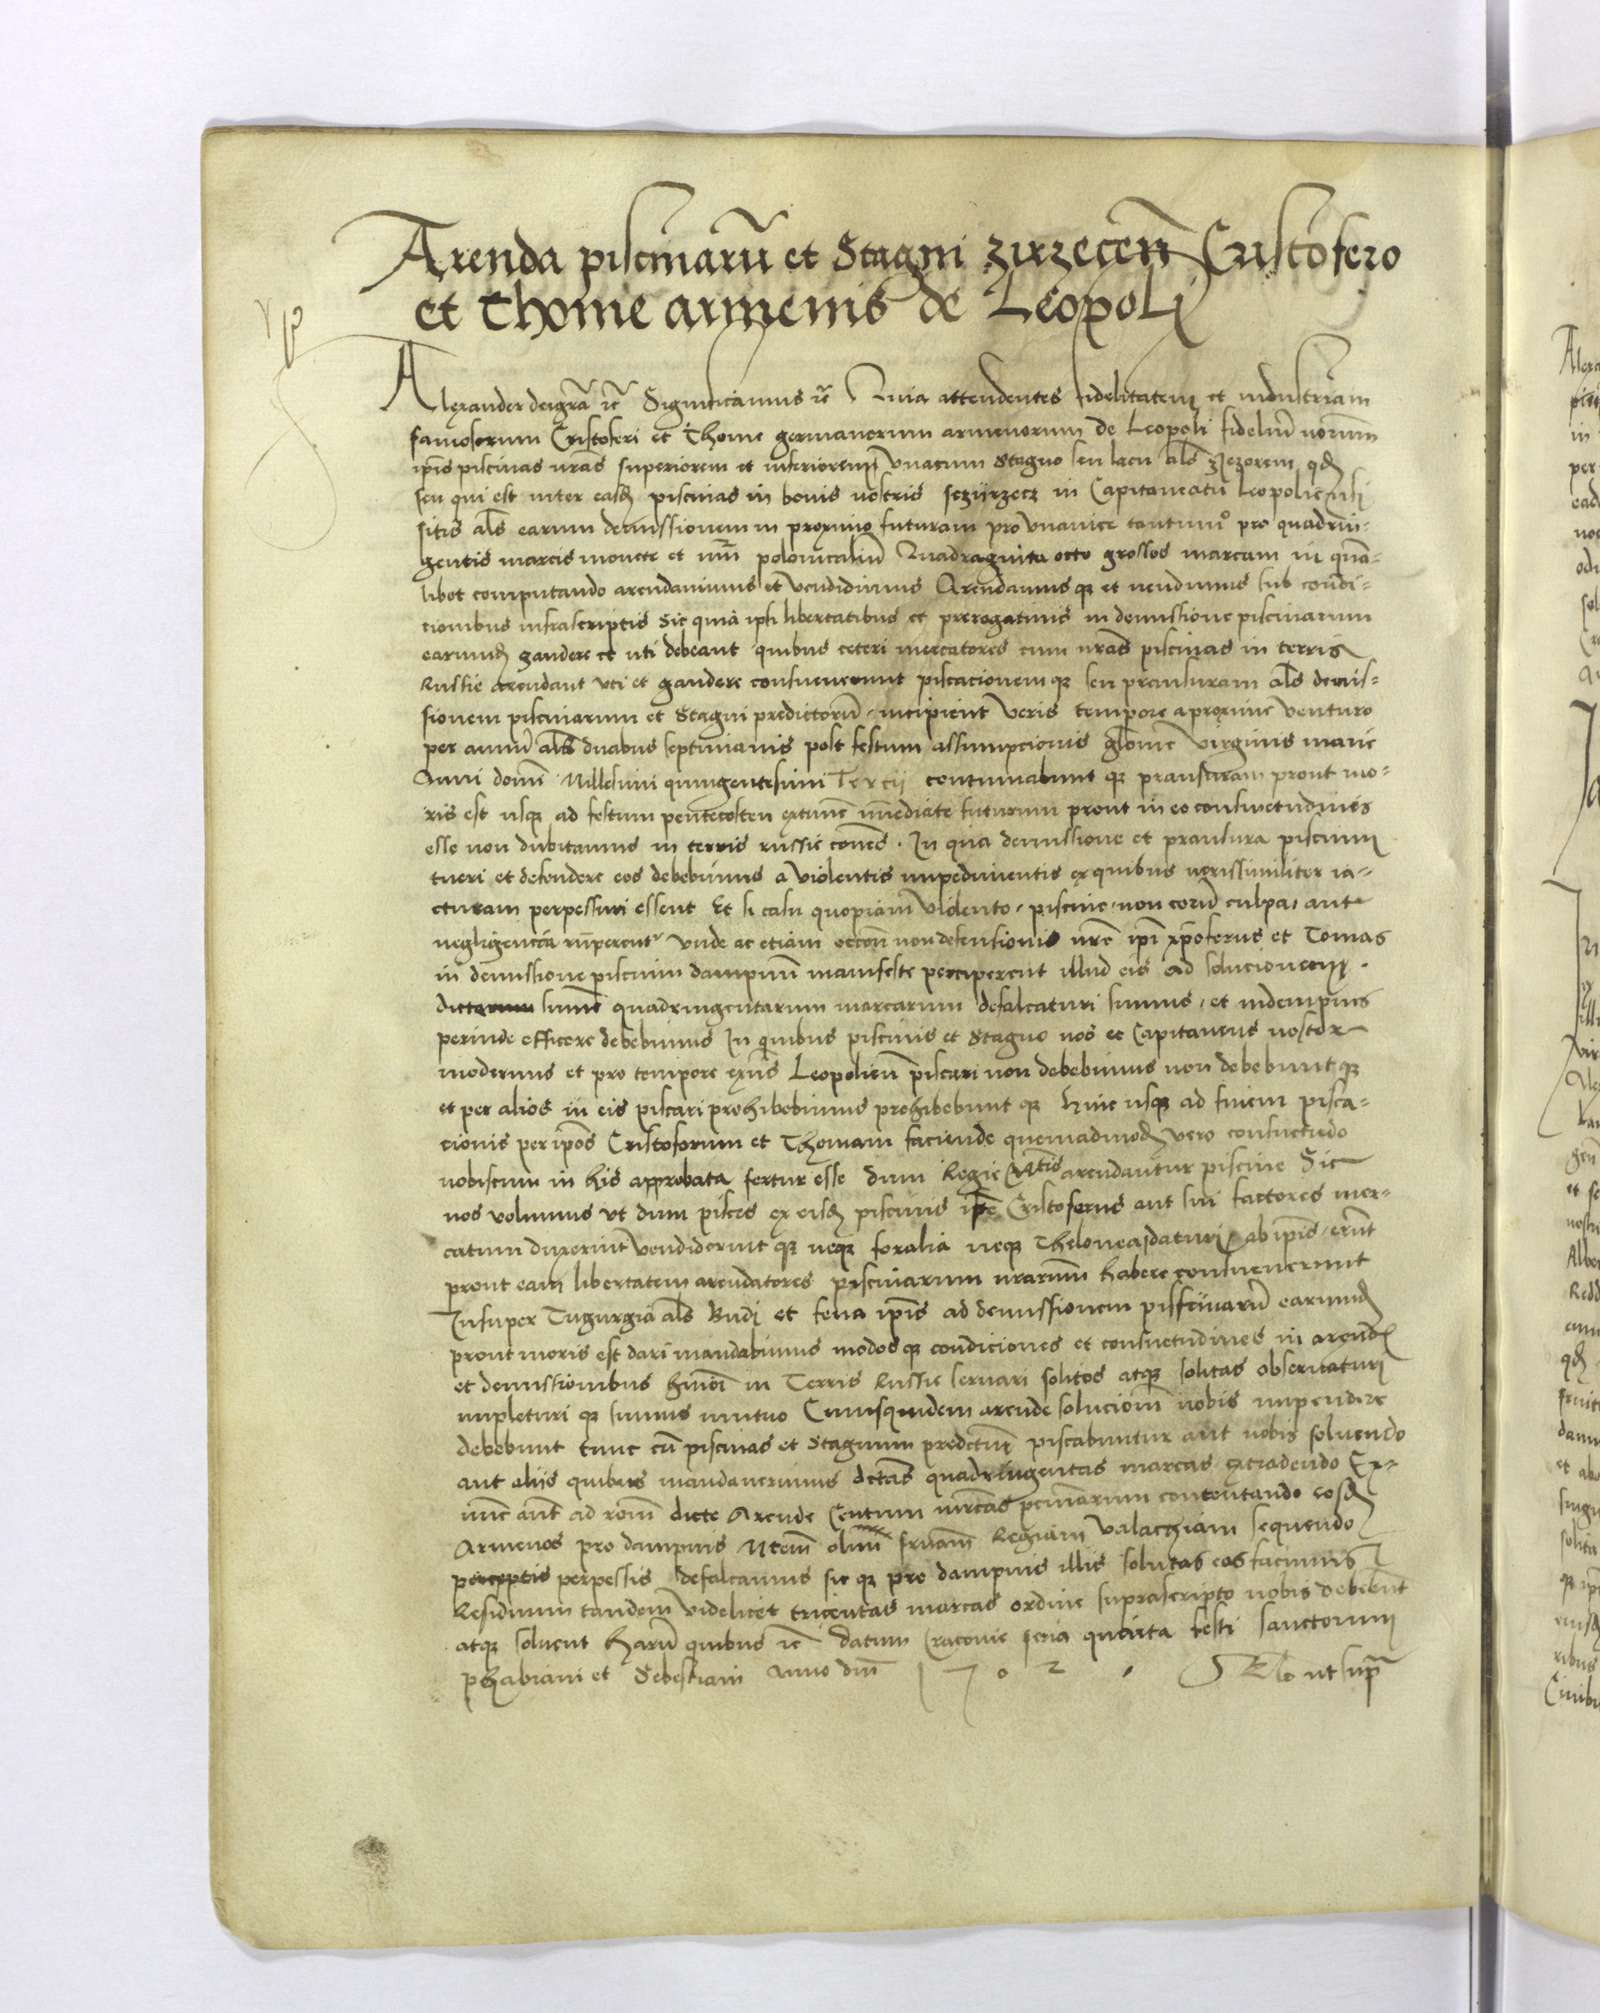 Arenda piscinarũ et Stagni zirzecen̄ Cristofero
et Thome armenis de Leopoli
Alexander dei grã rc̃ Significamus rc̃ Quia attendentes fidelitatem et industriam
famosorum Cristoferi et Thome germanorum armenorum de Leopoli fideliũ nrorum
ip̃is piscinas nrãs superiorem et inferiorem unacum Stagno seu lacu al̃s
seu qui est inter easdem piscinas in bonis nostris in Capitaneatu Leopolien̄
sitis al̃s earum demissionem in proximo futuram pro unavice tantum pro quadrin-
gentis marcis monete et polonicaliũ Quadraginta octo grossos marcam in quam-
libet computando arendavimus et vendidimus Arendamusqz et vendimus sub condi-
cionibus infrascriptis Sic quia ipsi libertatibus et prerogativis in demissione piscinarum
earumdem gaudere et uti debeant quibus ceteri mercatores cum nrãs piscinas in terris
Russie arendant uti et gaudere consueverunt piscacionemqz seu pransuram al̃s demis-
sionem piscinarum et Stagni predictorũ incipient veris tempore a proxime venturo
per annũ al̃s duabus septimanis post festum assumpcionis gl̃ose virginis marie
Anni domi Millesimi quingentesimi Tercii continuabuntqz pransuram prout mo-
ris est usqz ad festum penthecosten extunc immediate futurum prout in eo consuetudines
esse non dubitamus in terris russie com̃es. In qua demissione et pransura piscium
tueri et defendere eos debebimus a violentis impedimentis ex quibus verissimiliter ia-
cturam perpessuri essent Et si casu quopiam violento piscine non eorũ culpa aut
negligencia rumperent᷑ unde ac etiam occon̄ non defensionis nrẽ ipi xp̃oferus et Tomas
in demissione piscium dampnum manifeste perciperent illud eis ad solucionem
summe quadringentarum marcarum defalcaturi sumus et indempnes
perinde efficere debebimus In quibus piscinis et Stagno nos et Capitaneus noster
modernus et pro tempore exñs Leopolien̄ piscari non debebimus non debebuntqz
et per alios in eis piscari prohibebimus prohibebuntqz hinc usqz ad finem pisca-
cionis per ip̃os Cristoforum et Thomam faciende quemadmodum vero consuetudo
nobiscum in his approbata fertur esse dum Regie Mtis arendantur piscine Sic
nos volumus ut dum pisces ex eisdem piscinis ip̃e Cristoferus aut sui factores mer-
catum duxerint vendiderintqz neqz foralia neqz Thelonea daturi ab ip̃is erunt
prout eam libertatem arendatores piscinarum nrarum habere consueverunt
Insuper Tugurgia al̃s Budi et fena ip̃is ad demissionem piscinarũ earumdem
prout moris est dari mandabimus modosqz condiciones et consuetudines in arendis
et demissionibus hmõi in Terris Russie servari solitos atqz solitas observaturi
impleturiqz sumus mutuo Cuiusquidem arende solucionem nobis impendere
debebunt tunc cũ piscinas et Stagnum predictum piscabuntur aut nobis solvendo
aut aliis quibus mandaverimus dictas quadringentas marcas extradendo Ex-
tunc aut ad rom̄ dicte Arende Centum mrcas pecuniarum contentando eosdem
Armenos pro dampnis Regiam valachiam sequendo
perceptis perpessis defalcamus sicqz pro dampnis illis solutas eos facimus
Residuum tandem videlicet tricentas marcas ordine suprascripto nobis debebunt
atqz solvent harũ quibus rc̃ datum Cracovie feria quarta festi sanctorum
phabiani et Sebestiani Anno dni 1502. Relo ut supra